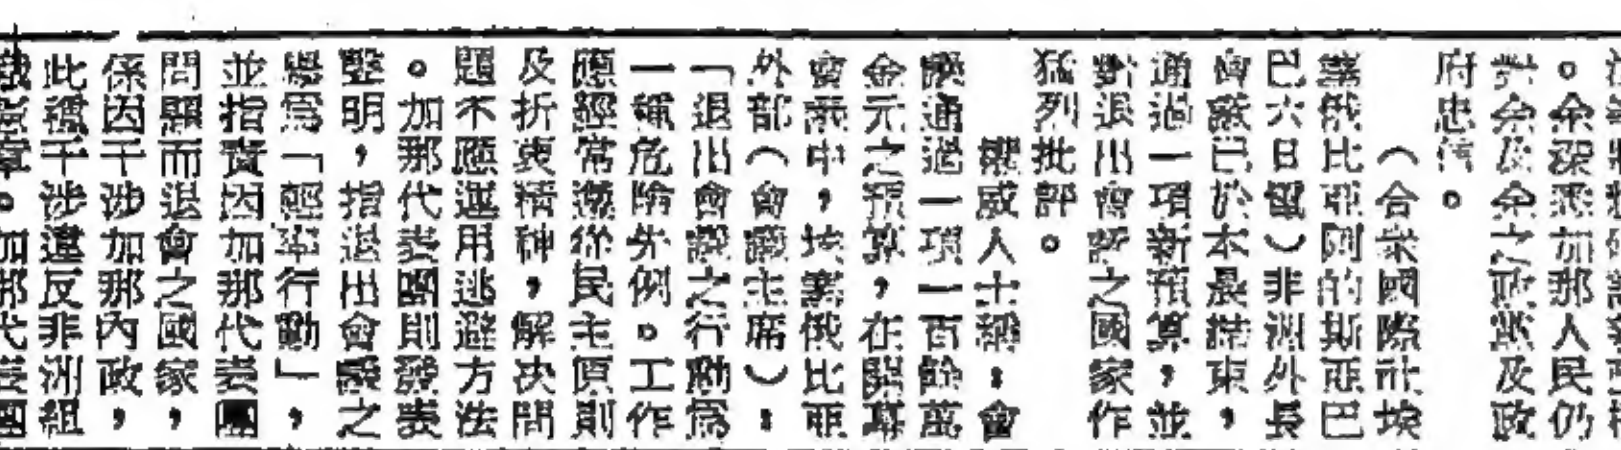 。余深悉加那人民仍
對余及余之政黨及政
府忠信。
（合衆國際社埃
塞俄比亞阿的斯亞巴
巴六日電）非洲外長
會議已於本晨結束，
通過一項新預算，並
對退出會議之國家作
猛烈批評。
權威人士稱：會
議通過一項一百餘萬
金元之預算，在閉幕
會議中，埃塞俄比亞
外部（會議主席）：
「退出會議之行動爲
一種危險先例。工作
應經常遵從民主原則
及折衷精神，解決問
題不應運用逃避方法
。加那代表團則發表
聲明，指退出會議之
舉爲「輕率行動」，
並指責因加那代表團
問題而退會之國家，
係因干涉加那內政，
此種干涉違反非洲組
織憲章。加那代表團